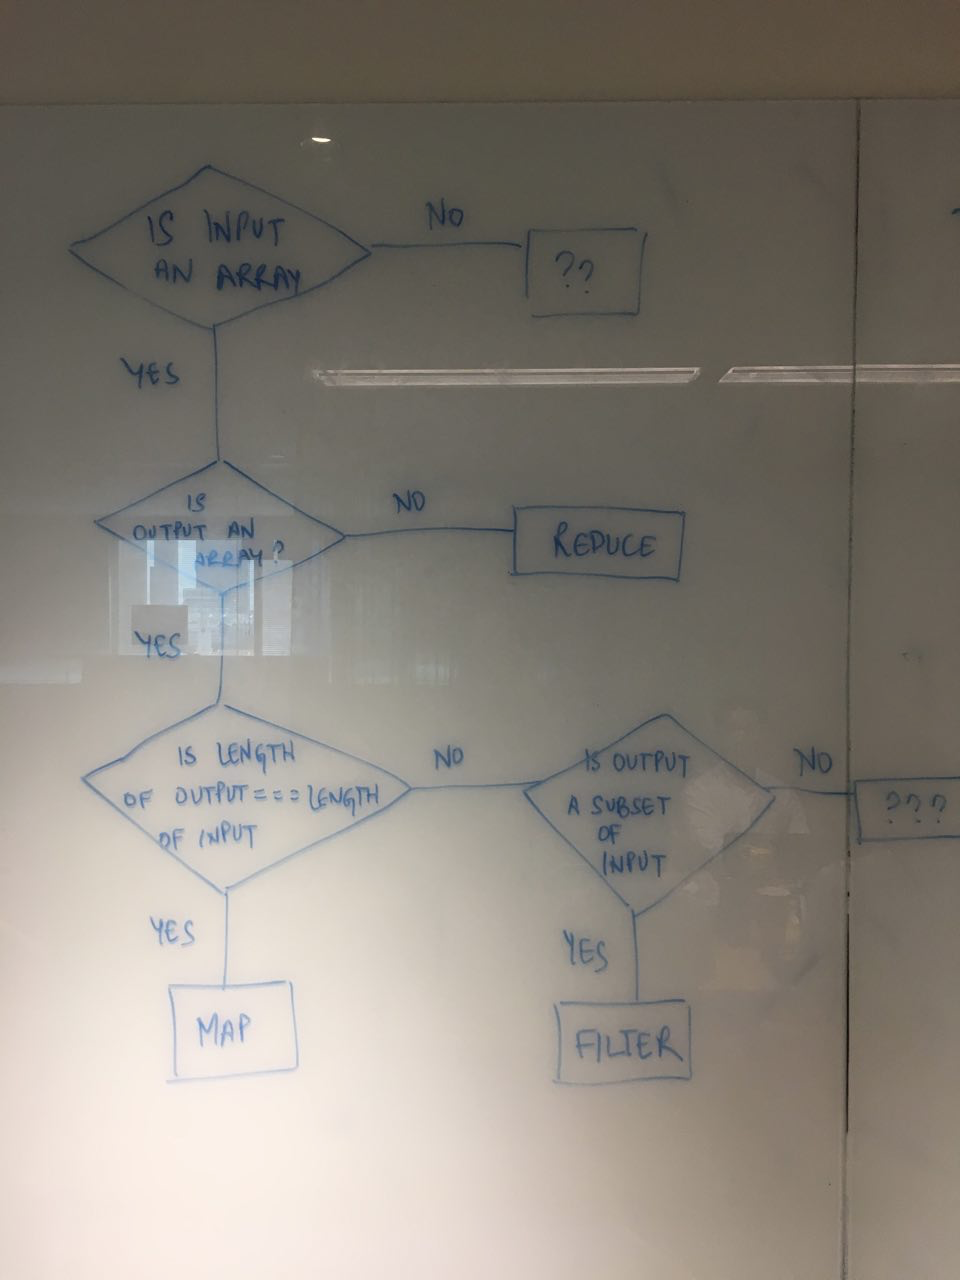 IS INPUT
AN ARRAY
NO
??
YES
IS
OUTPUT AN
ARRAY?
NO
REDUCE
YES
IS LENGTH
OF OUTPUT === LENGTH
OF INPUT
NO
IS OUTPUT
A SUBSET
OF
INPUT
NO
???
YES
MAP
YES
FILTER